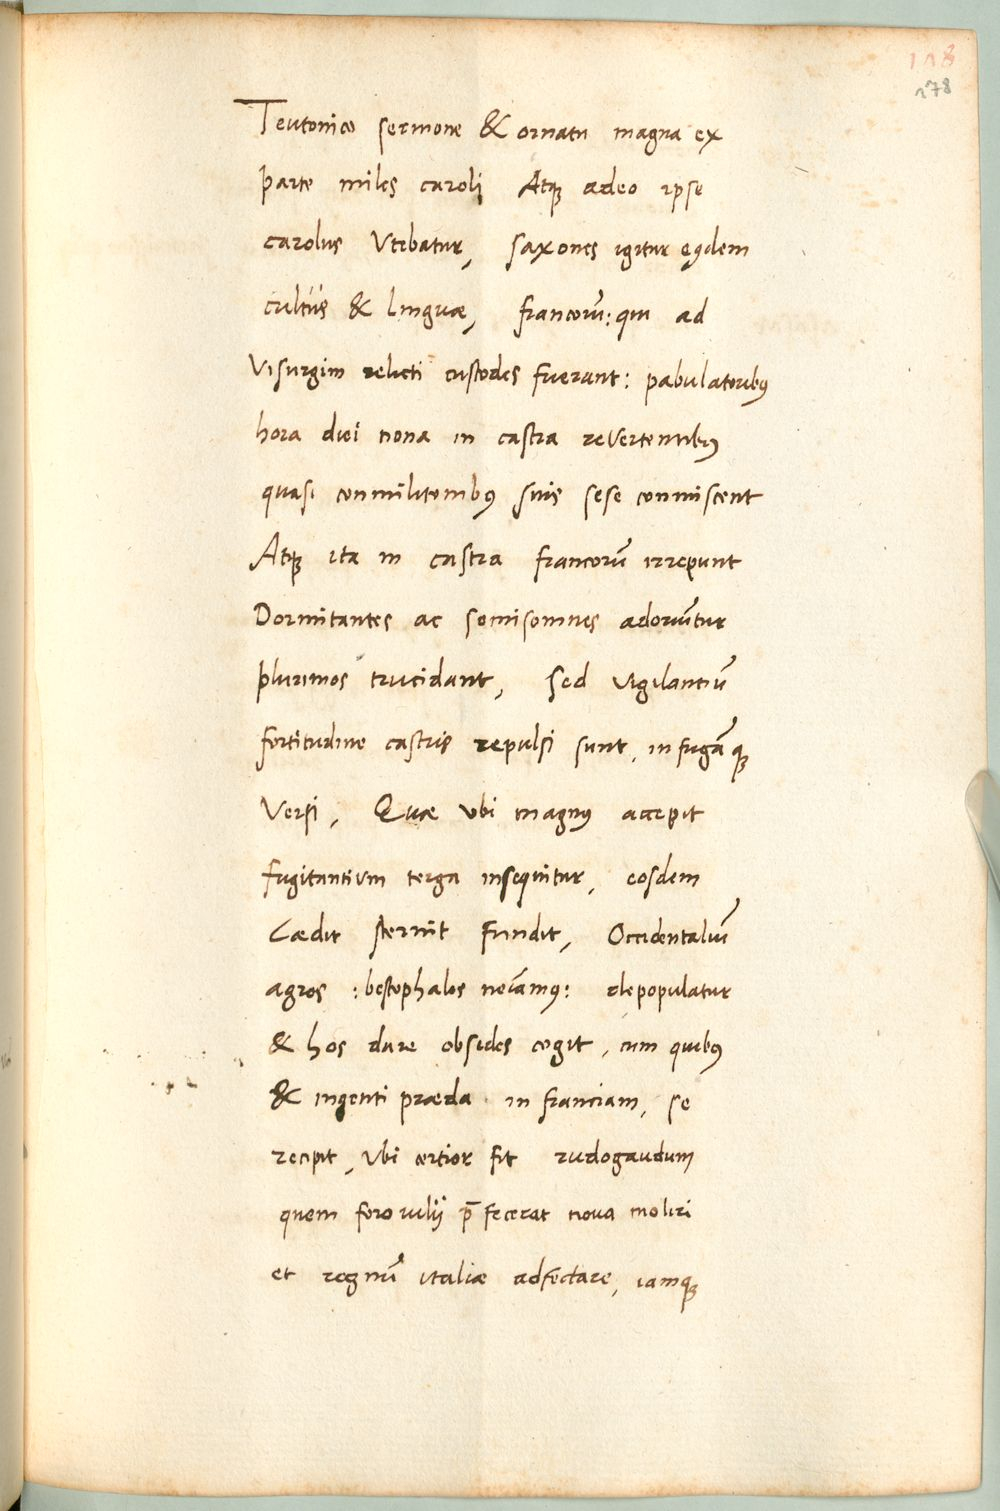 118
178
Teutonico sermone & ornatu magna ex
parte miles caroli Atqꝫ adeo ipse
carolus Vtebatur, saxones igitur eꝗdem
cultus & linguæ, francorū: qui ad
Visurgim relicti custodes fuerant: pabulatoribꝰ
hora diei nona in castra reVertentibꝰ
quasi conmilitonibꝰ suis sese conmiscent
Atqꝫ ita in castra francorū irrepunt
Dormitantes ac semisomnes adoriūtur
plurimos trucidant, sed vigilantiū
fortitudine castris repulsi sunt, in fugāqꝫ
Versi, Quæ vbi magnꝰ accepit
fugitantivm terga insequitur, eosdem
Cædit sternit fundit, Occidentaliū
agros :bestophalos nōīamꝰ: depopulatur
& hos dare obsides cogit, cum quibꝰ
& ingenti præda in franciam, se
recipit, Vbi certior fit rudogaudum
quem foro iulij p̄fecerat nova moliri
et regnū italiæ adfectare, iamqꝫ